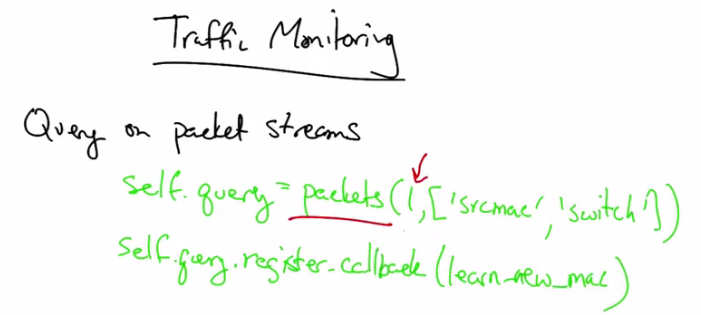 Traffic Monitoring
Query on packet streams
self.query = packets(1,['srcmac','switch'])
self.query.register_callback(learn_new_mac)